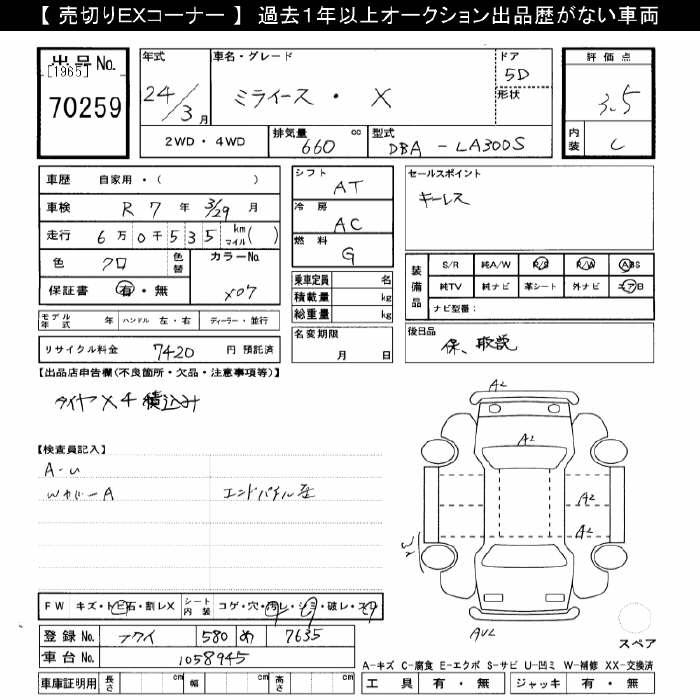 【 売切りEXコーナー 】 過去1年以上オークション出品歴がない車両
出品No.
[1965]
70259
年式
24/3月
車名・グレード
ミライース・X
ドア
5D
形状
2WD・4WD
排気量
660 cc
型式
DBA - LA300S
評価点
3.5
内装
C
車歴 自家用・( )
車検 R 7 年 3/29 月
走行 6万0千535 km マイル( )
色 クロ 色替 カラーNo.
X07
保証書 有・無
モデル年式 年 ハンドル 左・右 ディーラー・並行
リサイクル料金 7420 円 預託済
シフト
AT
冷房
AC
燃料
G
乗車定員 名
積載量 kg
総重量 kg
名変期限
月 日
セールスポイント
キーレス
装備品
S/R 純A/W P/S P/W ABS
純TV 純ナビ 革シート 外ナビ エアB
ナビ型番:
後日品
保、取説
【出品店申告欄(不良箇所・欠品・注意事項等)】
タイヤ×4 積込み
【検査員記入】
A-U
Wカバ-A
FW キズ・トビ石・割レX シート内装 コゲ・穴・汚レ・シミ・破レ・スレ
登録No. フクイ 580 め 7635
車台No. 1058945
車庫証明用 長さ cm 幅 cm 高さ cm
A2
A2
A2
A2
W2
AU2
スペア
A-キズ C-腐食 E-エクボ S-サビ U-凹ミ W-補修 XX-交換済
工具 有・無 ジャッキ 有・無